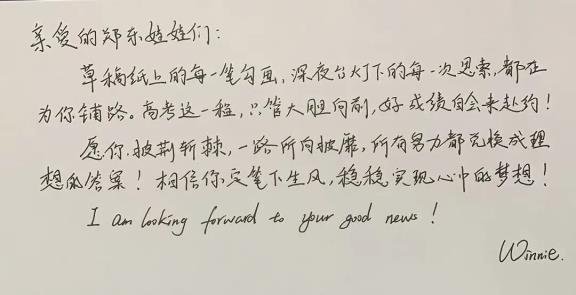 亲爱的郑东娃娃们：
草稿纸上的每一笔勾画，深夜台灯下的每一次思索，都在
为你铺路。高考这一程，只管大胆向前，好成绩自会来赴约！
愿你披荆斩棘，一路所向披靡，所有努力都兑换成理
想的答案！相信你定笔下生风，稳稳实现心中的梦想！
I am looking forward to your good news!
Winnie.